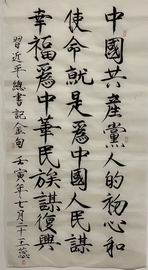 中國共產黨人的初心和
使命就是爲中國人民謀
幸福爲中華民族謀復興
習近平總書記金句 壬寅年七月二十 王蕊